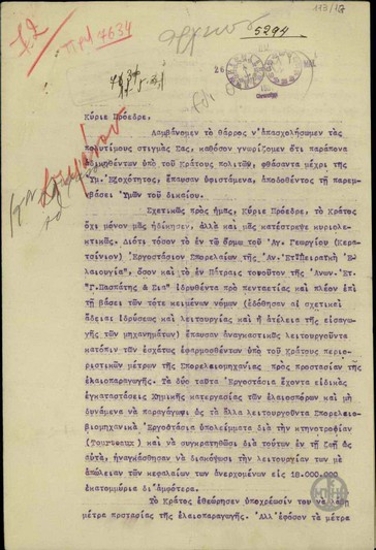 113/18
5294
7634
26
Κύριε Πρόεδρε.
Λαμβάνομεν τὸ θάρρος ν'ἀπασχολήσωμεν τὰς
πολυτίμους στιγμὰς Σας, καθόσον γνωρίζομεν ὅτι παράπονα
ἀδικηθέντων ὑπὸ τοῦ Κράτους πολιτῶν, φθάσαντα μέχρι τῆς
Ὑμ. Ἐξοχότητος, ἔπαυσαν ὑφιστάμενα, ἀποδοθέντος τῇ παρεμ-
βάσει Ὑμῶν τοῦ δικαίου.
Σχετικῶς πρὸς ἡμᾶς, Κύριε Πρόεδρε, τὸ Κράτος
ὄχι μόνον μᾶς ἠδίκησεν, ἀλλὰ καὶ μᾶς κατέστρεψε κυριολε-
κτικῶς. Διότι τόσον τὸ ἐν τῷ ὅρμῳ τοῦ Ἁγ. Γεωργίου (Κερα-
τσίνιον) Ἐργοστάσιον Σπορελαίων τῆς Ἀν. Ἑτ.
Ἐλαιουργία", ὅσον καὶ τὸ ἐν Πάτραις τοιοῦτον τῆς Ἀνων. Ἑτ.
"Γ. Πασπάτης & Σια" ἱδρυθέντα πρὸ πενταετίας καὶ πλέον ἐπὶ
τῇ βάσει τῶν τότε κειμένων νόμων (ἐδόθησαν αἱ σχετικαὶ
ἄδειαι ἱδρύσεως καὶ λειτουργίας καὶ ἡ ἀτέλεια τῆς εἰσαγω-
γῆς τῶν μηχανημάτων) ἔπαυσαν ἀναγκαστικῶς λειτουργοῦντα
κατόπιν τῶν ἐσχάτως ἐφαρμοσθέντων ὑπὸ τοῦ Κράτους περιο-
ριστικῶν μέτρων τῆς Σπορελαιομηχανίας πρὸς προστασίαν τῆς
ἐλαιοπαραγωγῆς. Τὰ δύο ταῦτα Ἐργοστάσια ἔχοντα εἰδικὰς
ἐγκαταστάσεις Χημικῆς κατεργασίας τῶν ἐλαιοσπόρων καὶ μὴ
δυνάμενα νὰ παραγάγωσι ὡς τὰ ἄλλα λειτουργοῦντα Σπορελαιο-
βιομηχανικὰ Ἐργοστάσια ὑπολείμματα διὰ τὴν κτηνοτροφίαν
(Tourteaux) καὶ νὰ συγκρατηθῶσι διὰ τούτων ἐν τῇ ζωῇ ὡς
αὐτά, ἠναγκάσθησαν νὰ διακόψωσι τὴν λειτουργίαν των μὲ
ἀπώλειαν τῶν κεφαλαίων των ἀνερχομένων εἰς 18.000.000
ἑκατομμύρια δι'ἀμφότερα.
Τὸ Κράτος ἐθεώρησεν ὑποχρέωσίν του νὰ λάβῃ
μέτρα προστασίας τῆς ἐλαιοπαραγωγῆς. Ἀλλ'ἐφόσον τὰ μέτρα